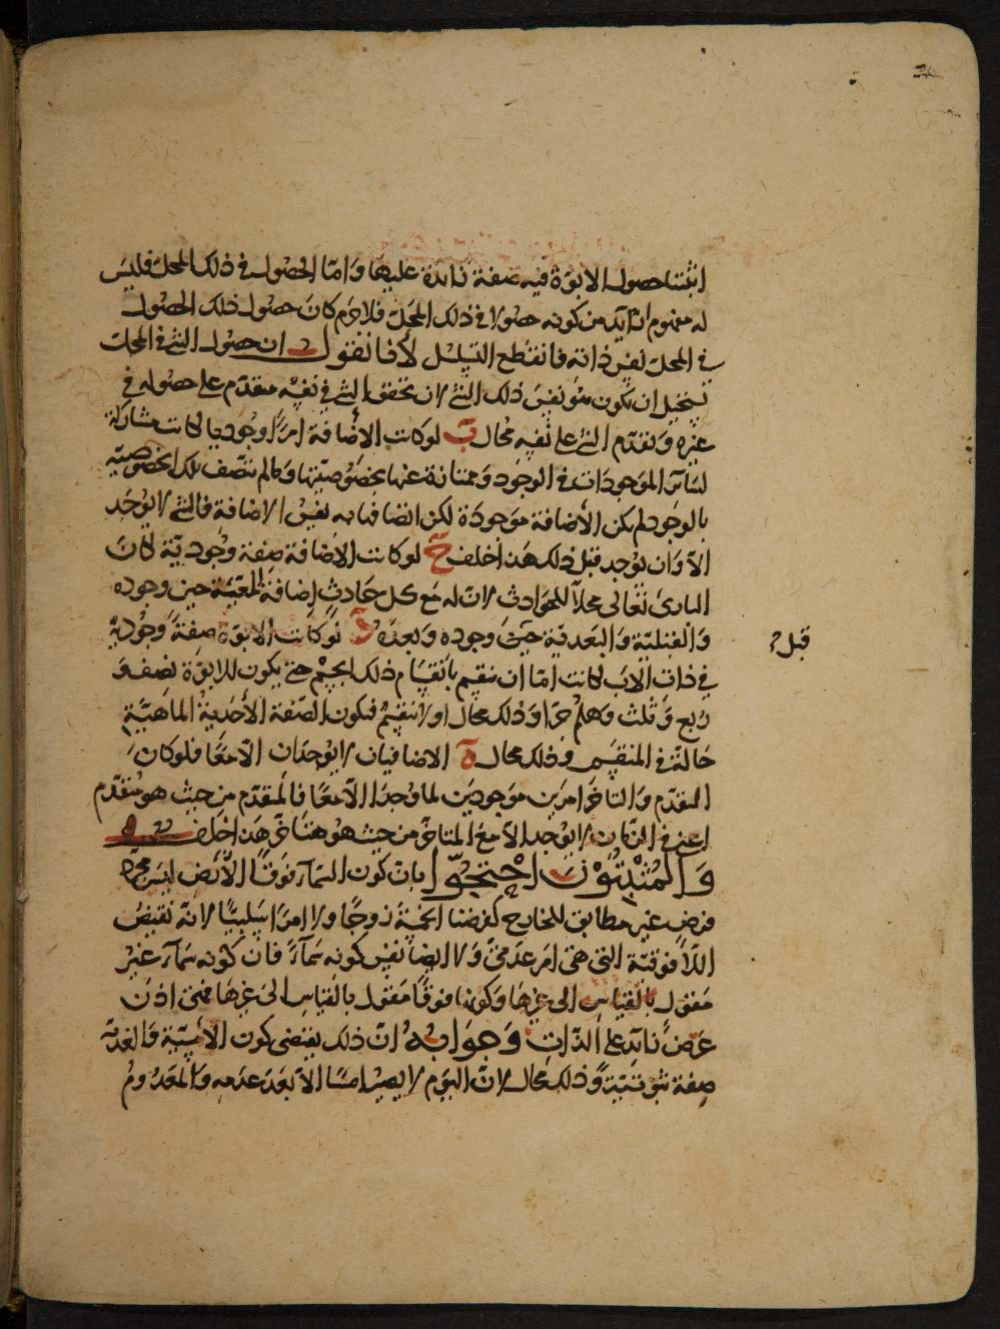 اثبتنا حصول الابوة فيه صفة زائدة عليها واما الحصول في ذلك المحل فليس
له مفهوم ازيد من كونه حصولا في ذلك المحل فلا جرم كان حصول ذلك الحصول
في المحل نفس ذاته فانقطع التسلسل لانا نقول ان حصول الشئ في المحل
يستحيل ان يكون هو نفس ذلك الشئ لان تحقق الشئ في نفسه متقدم على حصوله في
غيره وتقدم الشئ على نفسه محال ب لو كانت الاضافة امرا وجوديا لكانت مشاركة
لسائر الموجودات في الوجود وممتازة عنها بخصوصيتها وما لم تتصف تلك الخصوصية
بالوجود لم تكن الاضافة موجودة لكن اتصافها به نفس الاضافة فالشئ لا يوجد
الا وان يوجد قبل ذلك هذا خلف ج لو كانت الاضافة صفة وجودية لكان
البارئ تعالى محلا للحوادث لان له مع كل حادث اضافة المعية حين وجوده
والقبلية والبعدية حين وجوده وبعده د لو كانت الابوة صفة وجودية
قبل
في ذات الاب لكانت اما ان تنقسم بانقسام ذلك الجسم حتى يكون للابوة نصف و
ربع وثلث وهلم جرا وذلك محال او لا تنقسم فتكون الصفة الأحدية الماهية
حالة في المنقسم وذلك محال ه الاضافيان لا يوجدان الا معا فلو كان
المتقدم والمتاخر امرين موجودين لما وجدا الا معا فالمتقدم من حيث هو متقدم
اعني في الزمان لا يوجد الا مع المتاخر من حيث هو متاخر هذا خلف
والمثبتون احتجوا بان كون السماء فوق الارض ليس مجرد
فرض غير مطابق للخارج كفرضنا الخمسة زوجا ولا امرا سلبيا لانه نقيض
اللا فوقية التي هي امر عدمي ولا ايضا نفس كونه سماء فان كونه سماء غير
مقول بالقياس الى غيرها وكونها فوقا مقول بالقياس الى غيرها فهي اذن
عرض زائد على الذات وجوابه ان ذلك يقتضي كون الأمسية والغدية
صفة ثبوتية وذلك محال لان اليوم لا يصير امسا الا بعد عدمه والمعدوم